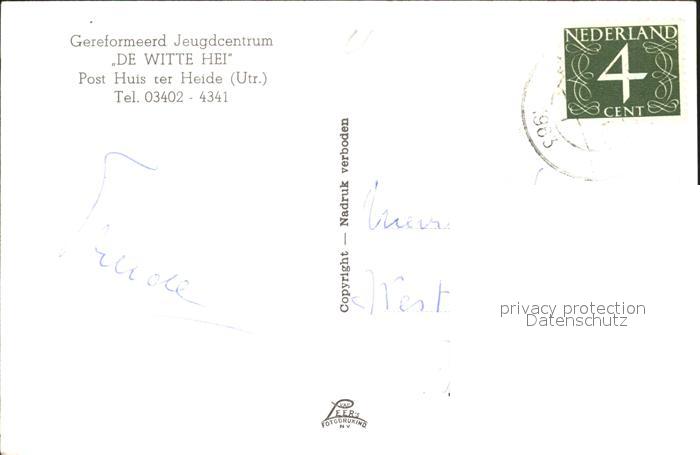 Gereformeerd Jeugdcentrum
„DE WITTE HEI"
Post Huis ter Heide (Utr.)
Tel. 03402 - 4341
Truide
Copyright — Nadruk verboden
West
VAN
LEER'S
FOTODRUKIND.
N.V.
NEDERLAND
4
CENT
1963
privacy protection
Datenschutz